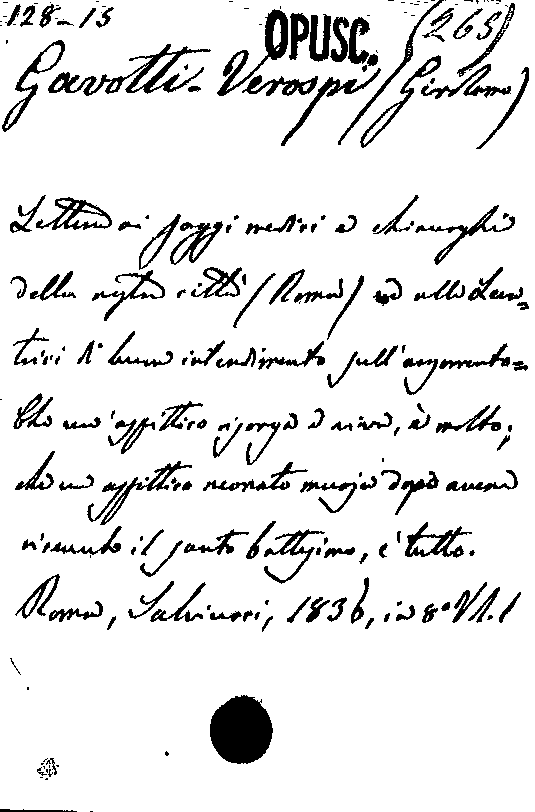 128-15
OPUSC.
(265)
Gavotti-Verospi (Girolamo)
Lettera ai saggi medici e chirurghi
della nostra città (Roma) ed alle Leva=
trici di buon intendimento sull'argomento=
Che un'asfittico risorga a vivere, è molto;
che un asfittico neonato muoja dopo avere
ricevuto il santo battesimo, è tutto.
Roma, Salviucci, 1836, in 8º